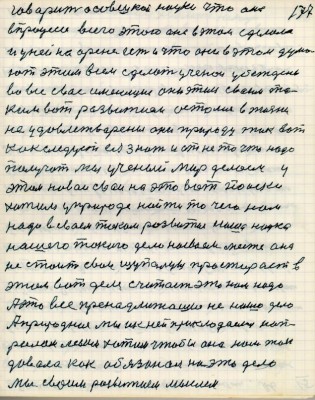 говорит о совецкой науке что она 177
в процессе всего этого она в этом сделала
и у ней на арене есть и что они в этом дума-
ют этим всем сделат ученои убежден
во все свае имеющие они этим своим та-
ким вот развитием остоле в жизни
не удовлетварены они природу так вот
как следует её знат и от не то что надо
получат мы ученый мир делаем у
этом новая свая на это вот поиски
хотим у природе найти то чего нам
надо в своем таком развитие наша наука
нашего такого дела на своем месте она
не стоит свои щупальцы простирает в
этом вот деле считает это нам надо
А это все пренадлижащие не наше дело
А природное мы их ней прикладаем нап-
ровляем хотим чтобы она нам там
довала как обязаная на это дело
мы своим развитием мыслем